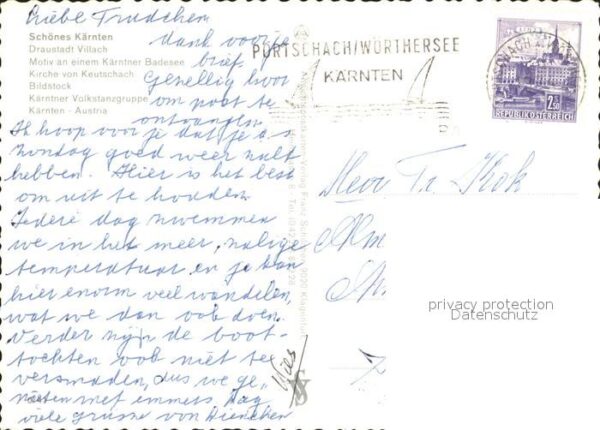 Liebe Trudchen
Schönes Kärnten
Draustadt Villach
Motiv an einem Kärntner Badesee
Kirche von Keutschach
Bildstock
Kärntner Volkstanzgruppe
Kärnten - Austria
dank voor je
brief,
Gezellig hoor
om post te
ontvangen.
Ik hoop voor je dat je a.s.
zondag goed weer zult
hebben. Hier is het best
om uit te houden.
Iedere dag zwemmen
we in het meer, zalige
temperatuur en je kan
hier enorm veel wandelen,
wat we dan ook doen.
Verder zijn de boot-
tochten ook niet te
versmaden, dus we ge-
nieten met emmers. Dag
viele grüsse von Dienchen
Wies
PÖRTSCHACH/WÖRTHERSEE
KÄRNTEN
2.20
REPUBLIK ÖSTERREICH
Herr Fr. Kok
privacy protection
Datenschutz